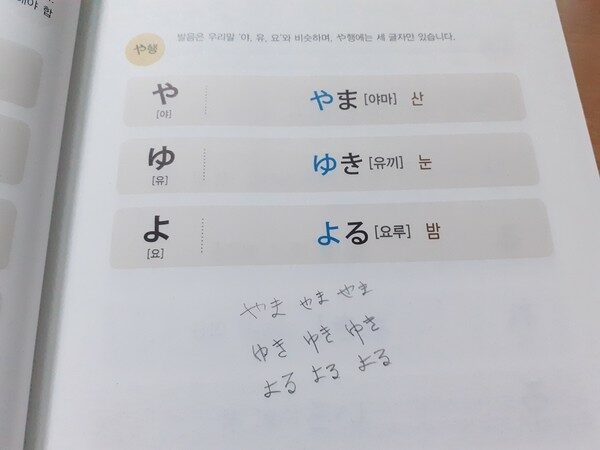 해야 함
や행
발음은 우리말 '야, 유, 요'와 비슷하며, や행에는 세 글자만 있습니다.
や [야] やま [야마] 산
ゆ [유] ゆき [유끼] 눈
よ [요] よる [요루] 밤
やま やま やま
ゆき ゆき ゆき
よる よる よる